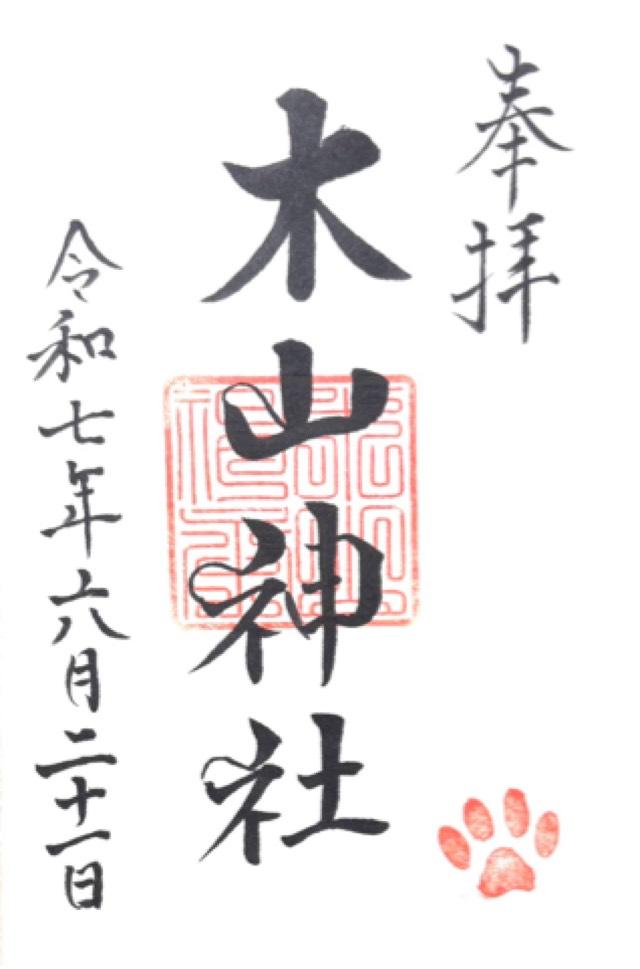 奉拝
木山神社
令和七年六月二十一日